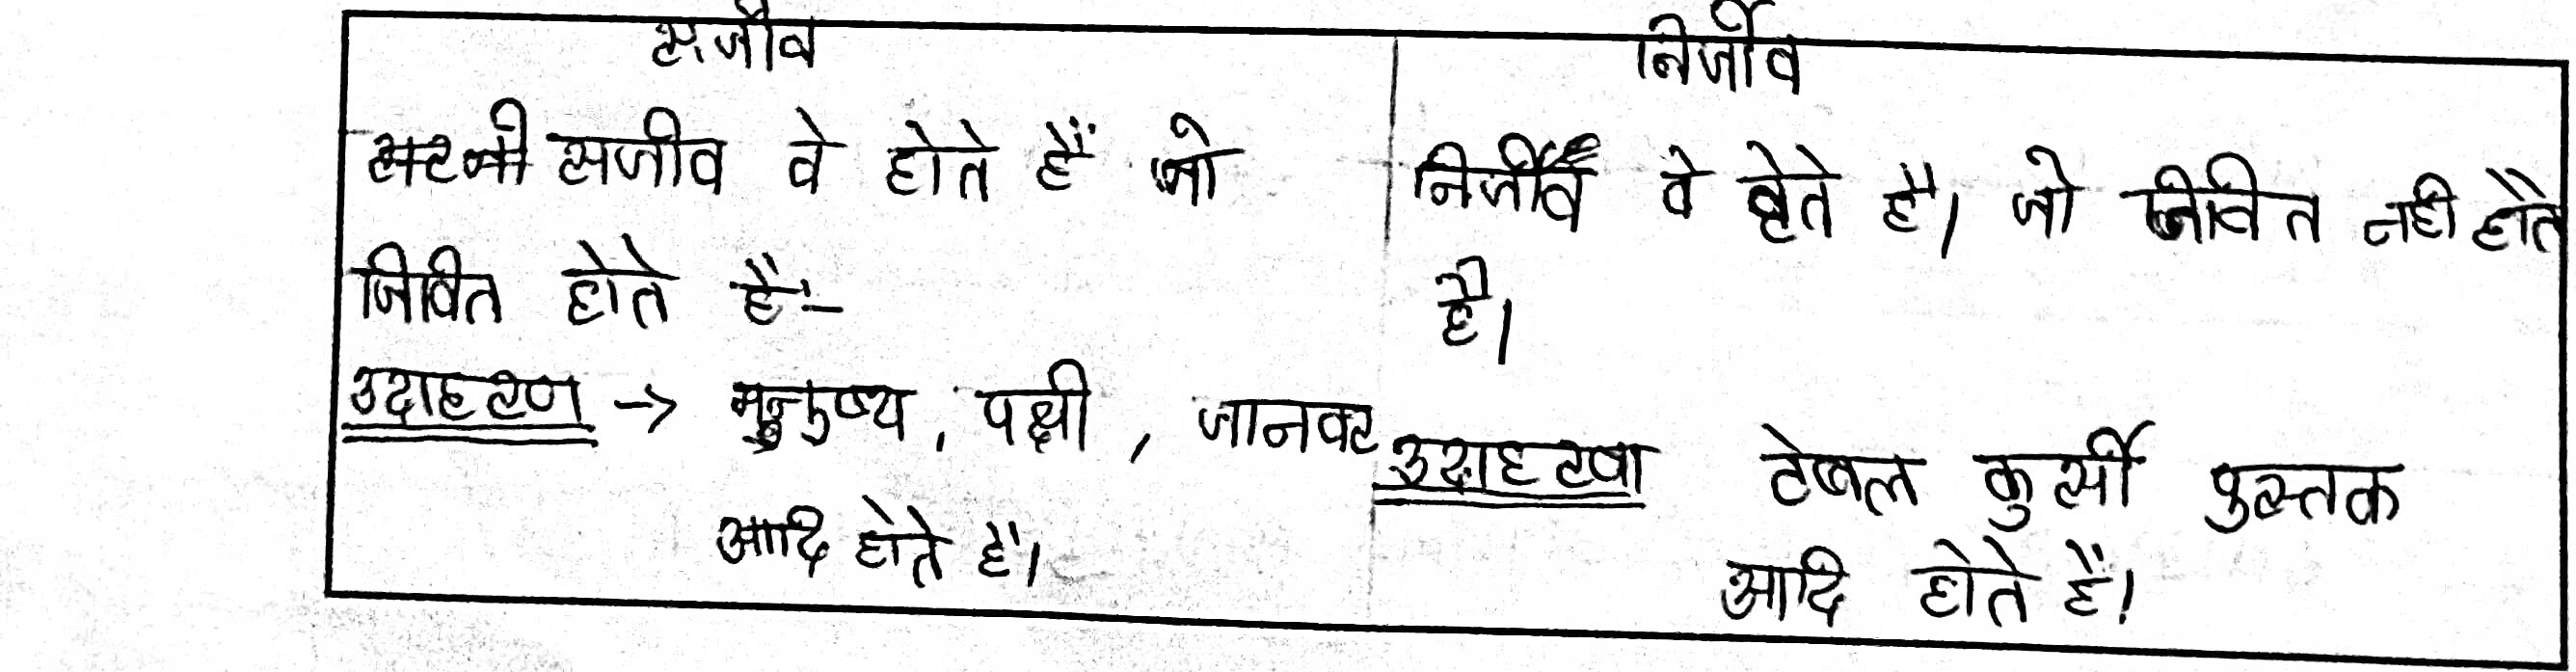 सजीव
सजीव वे होते हैं जो
जिवित होते हैं-
उदाहरण → मनुष्य, पक्षी, जानवर
आदि होते है।
निर्जीव
निर्जीव वे होते है। जो जीवित नही होते
है।
उदाहरण टेबल कुर्सी पुस्तक
आदि होते हैं।